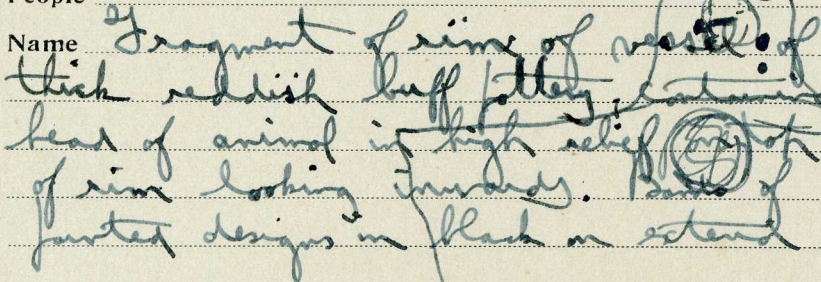 People
Name Fragment of rim of vessel of
thick reddish buff pottery, containing
head of animal in high relief on top
of rim looking inwards. Bands of
painted designs in black on extend